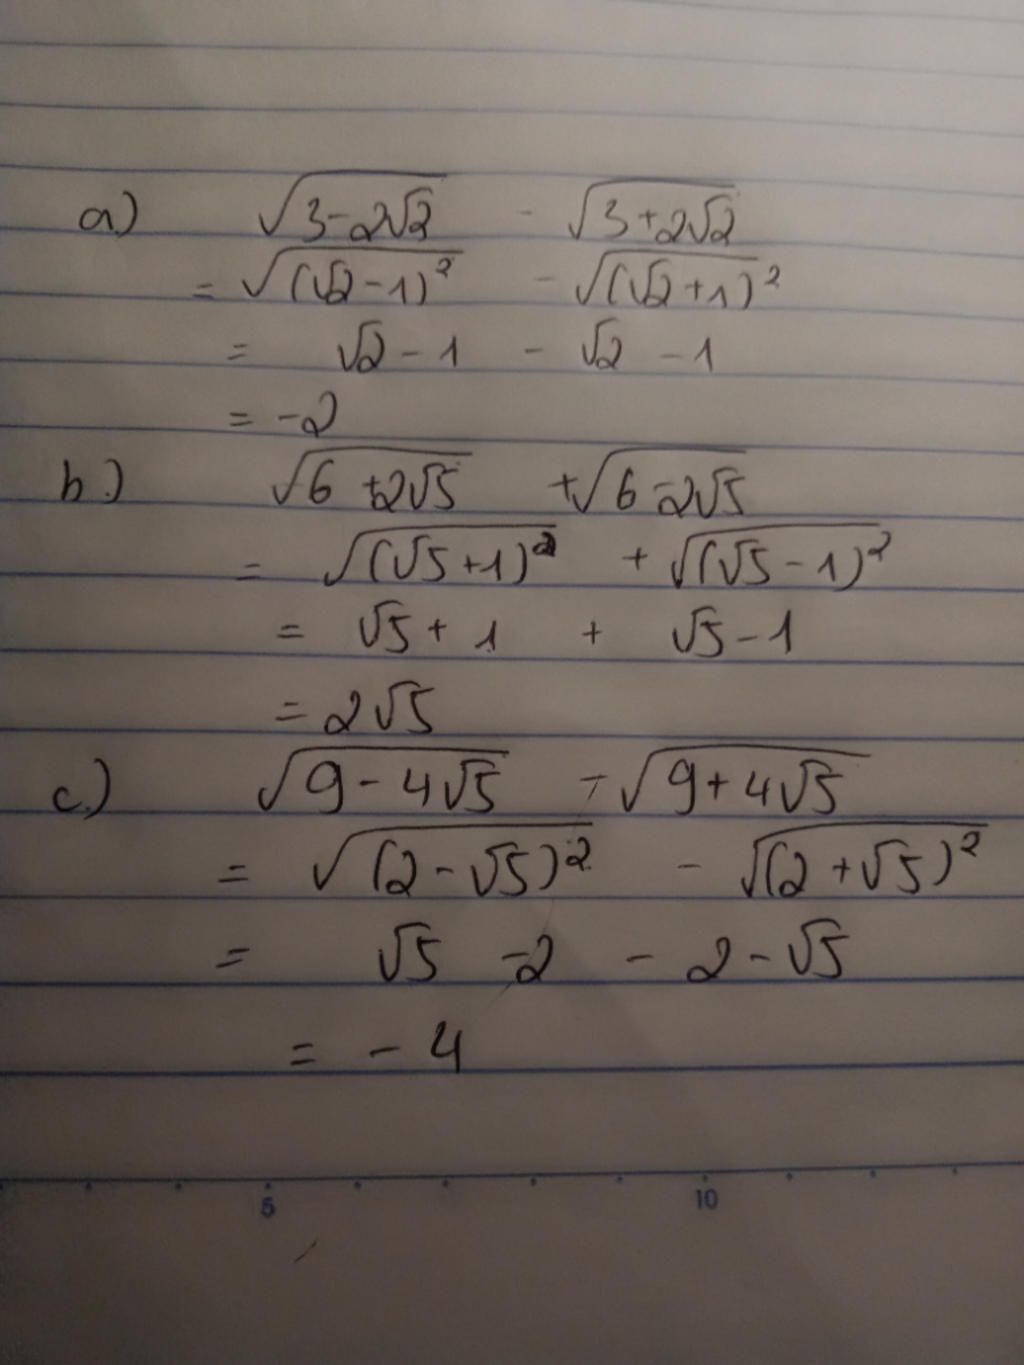 a.) √(3-2√2) - √(3+2√2)
= √((√2-1)²) - √((√2+1)²)
= √2-1 - √2-1
= -2
b.) √(6+2√5) + √(6-2√5)
= √((√5+1)²) + √((√5-1)²)
= √5+1 + √5-1
= 2√5
c.) √(9-4√5) - √(9+4√5)
= √((2-√5)²) - √((2+√5)²)
= √5-2 - 2-√5
= -4
5 10